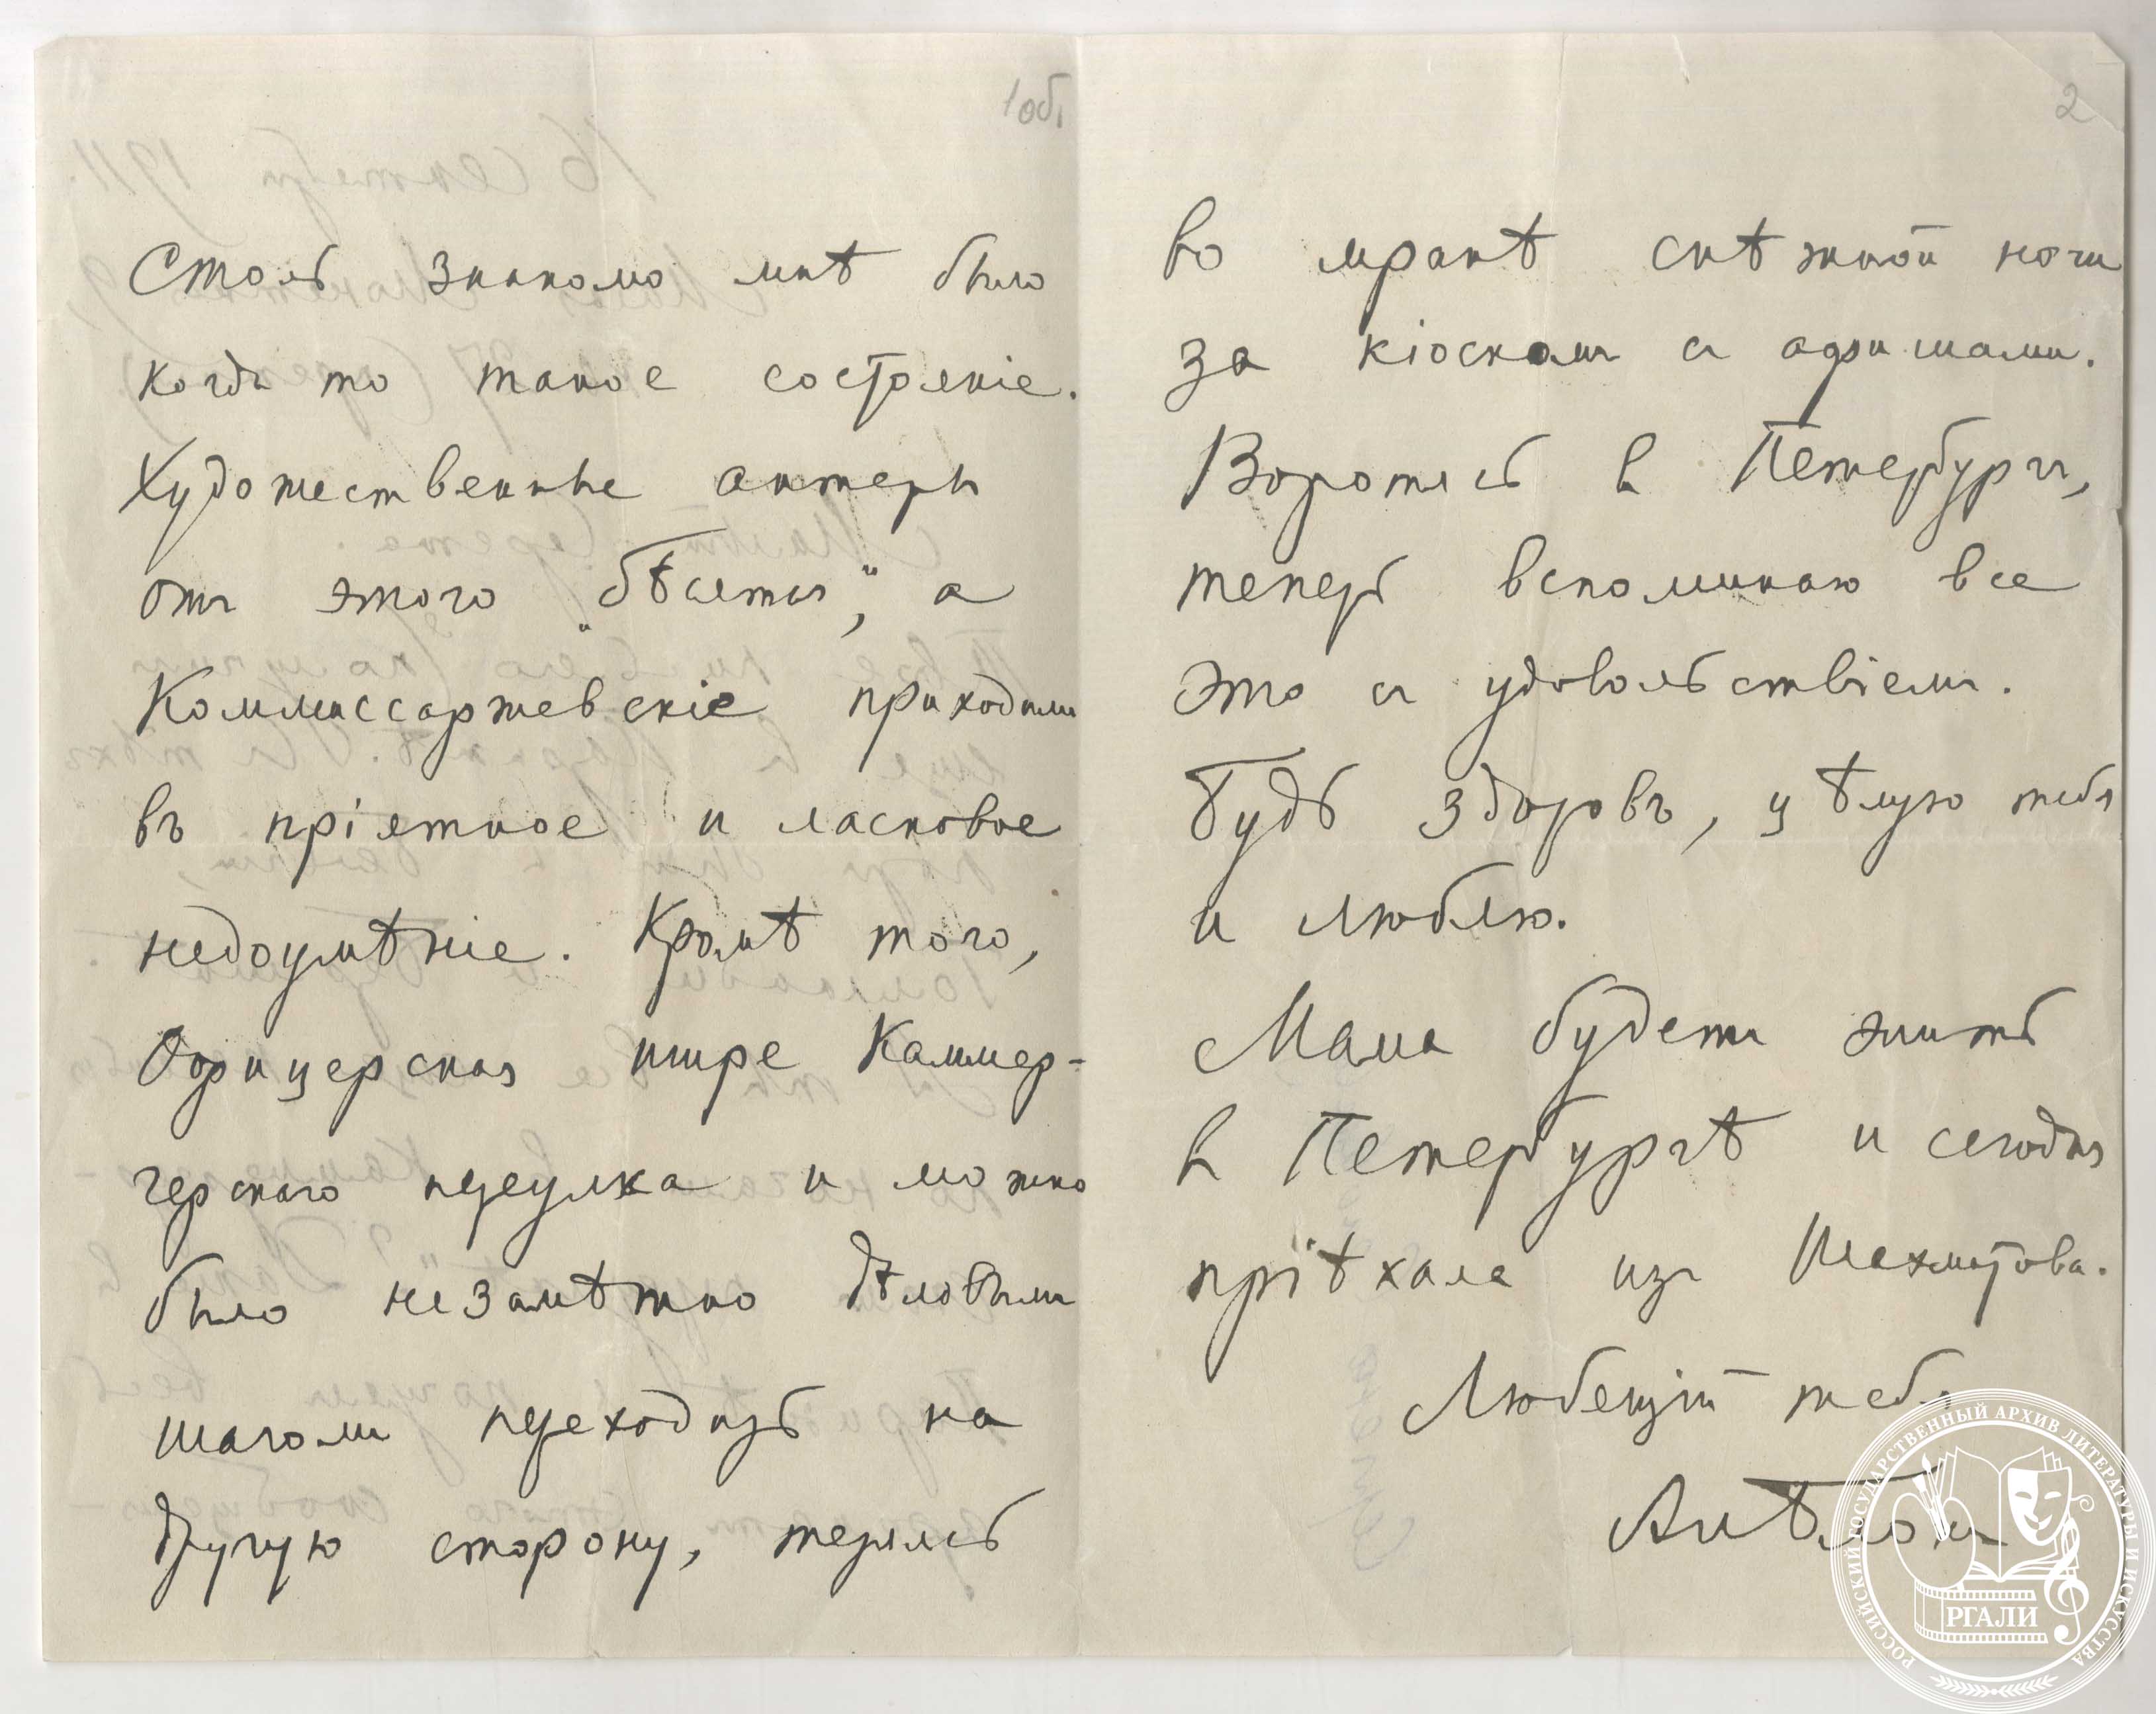 1об.
Столь знакомо мнѣ было
когда то такое состоянiе.
Художественные актеры
отъ этого „бѣсятся“, а
Коммиссаржевскiе приходили
въ прiятное и ласковое
недоумѣнiе. Кромѣ того,
Офицерская шире Каммер-
герскаго переулка и можно
было незамѣтно дѣловымъ
шагомъ переходить на
другую сторону, теряясь
2
во мракѣ снѣжной ночи
за кiоскомъ съ афишами.
Воротясь въ Петербургъ,
теперь вспоминаю все
это съ удовольствiемъ.
Будь здоровъ, цѣлую тебя
и люблю.
Мама будетъ жить
въ Петербургѣ и сегодня
прiѣхала изъ Шахматова.
Любящiй тебя
РОССИЙСКИЙ ГОСУДАРСТВЕННЫЙ АРХИВ ЛИТЕРАТУРЫ И ИСКУССТВА
РГАЛИ